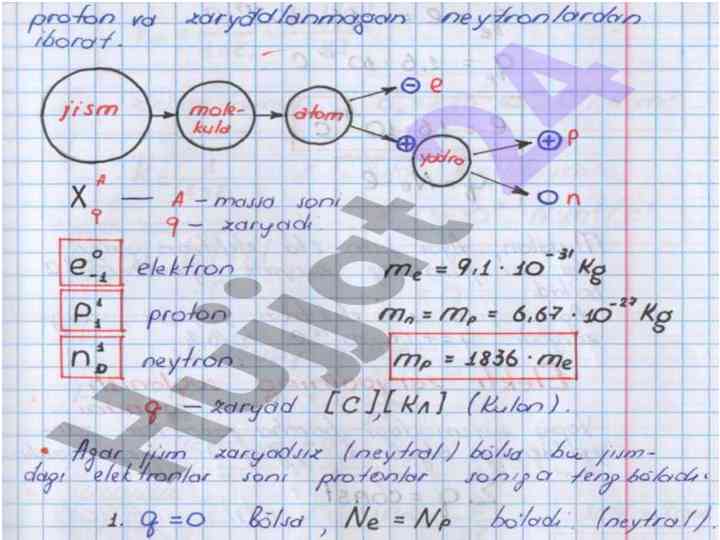 proton va zaryadlanmagan neytronlardan
iborat.
jism
mole-
kula
atom
⊖ e
⊕
yadro
⊕ p
n
X A q — A – massa soni
q – zaryadi
e⁰₋₁ elektron mₑ = 9,1 · 10⁻³¹ Kg
P¹₁ proton mₙ = mₚ = 6,67 · 10⁻²⁷ Kg
n¹₀ neytron mₚ = 1836 · mₑ
q – zaryad [C],[Кл] (Kulon).
• Agar jism zaryadsiz (neytral) bolsa bu jism-
dagi elektronlar soni protonlar soniga teng boladi.
1. q = 0 Bolsa, Nₑ = Nₚ boladi. (neytral).
Hujjat 24